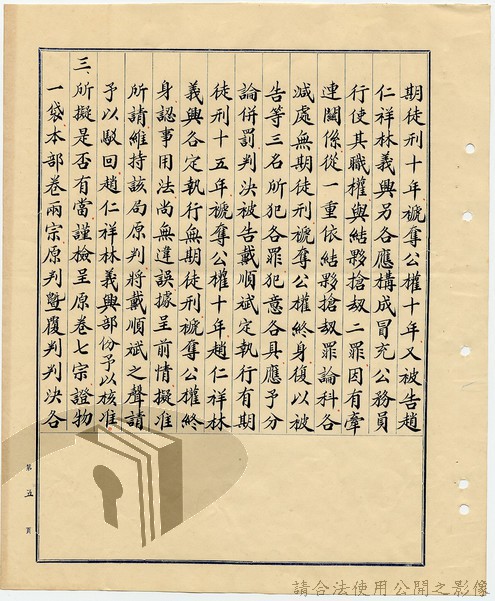 期徒刑十年褫奪公權十年又被告趙
仁祥林義興另各應構成冒充公務員
行使其職權與結夥搶刼二罪因有牽
連關係從一重依結夥搶刼罪論科各
減處無期徒刑褫奪公權終身復以被
告等三名所犯各罪犯意各具應予分
論併罰判決被告戴順斌定執行有期
徒刑十五年褫奪公權十年趙仁祥林
義興各定執行無期徒刑褫奪公權終
身認事用法尚無違誤據呈前情擬准
所請維持該局原判將戴順斌之聲請
予以駁回趙仁祥林義興部份予以核准
三、所擬是否有當謹檢呈原卷七宗證物
一袋本部卷兩宗原判暨覆判判決各
第五頁
請合法使用公開之影像